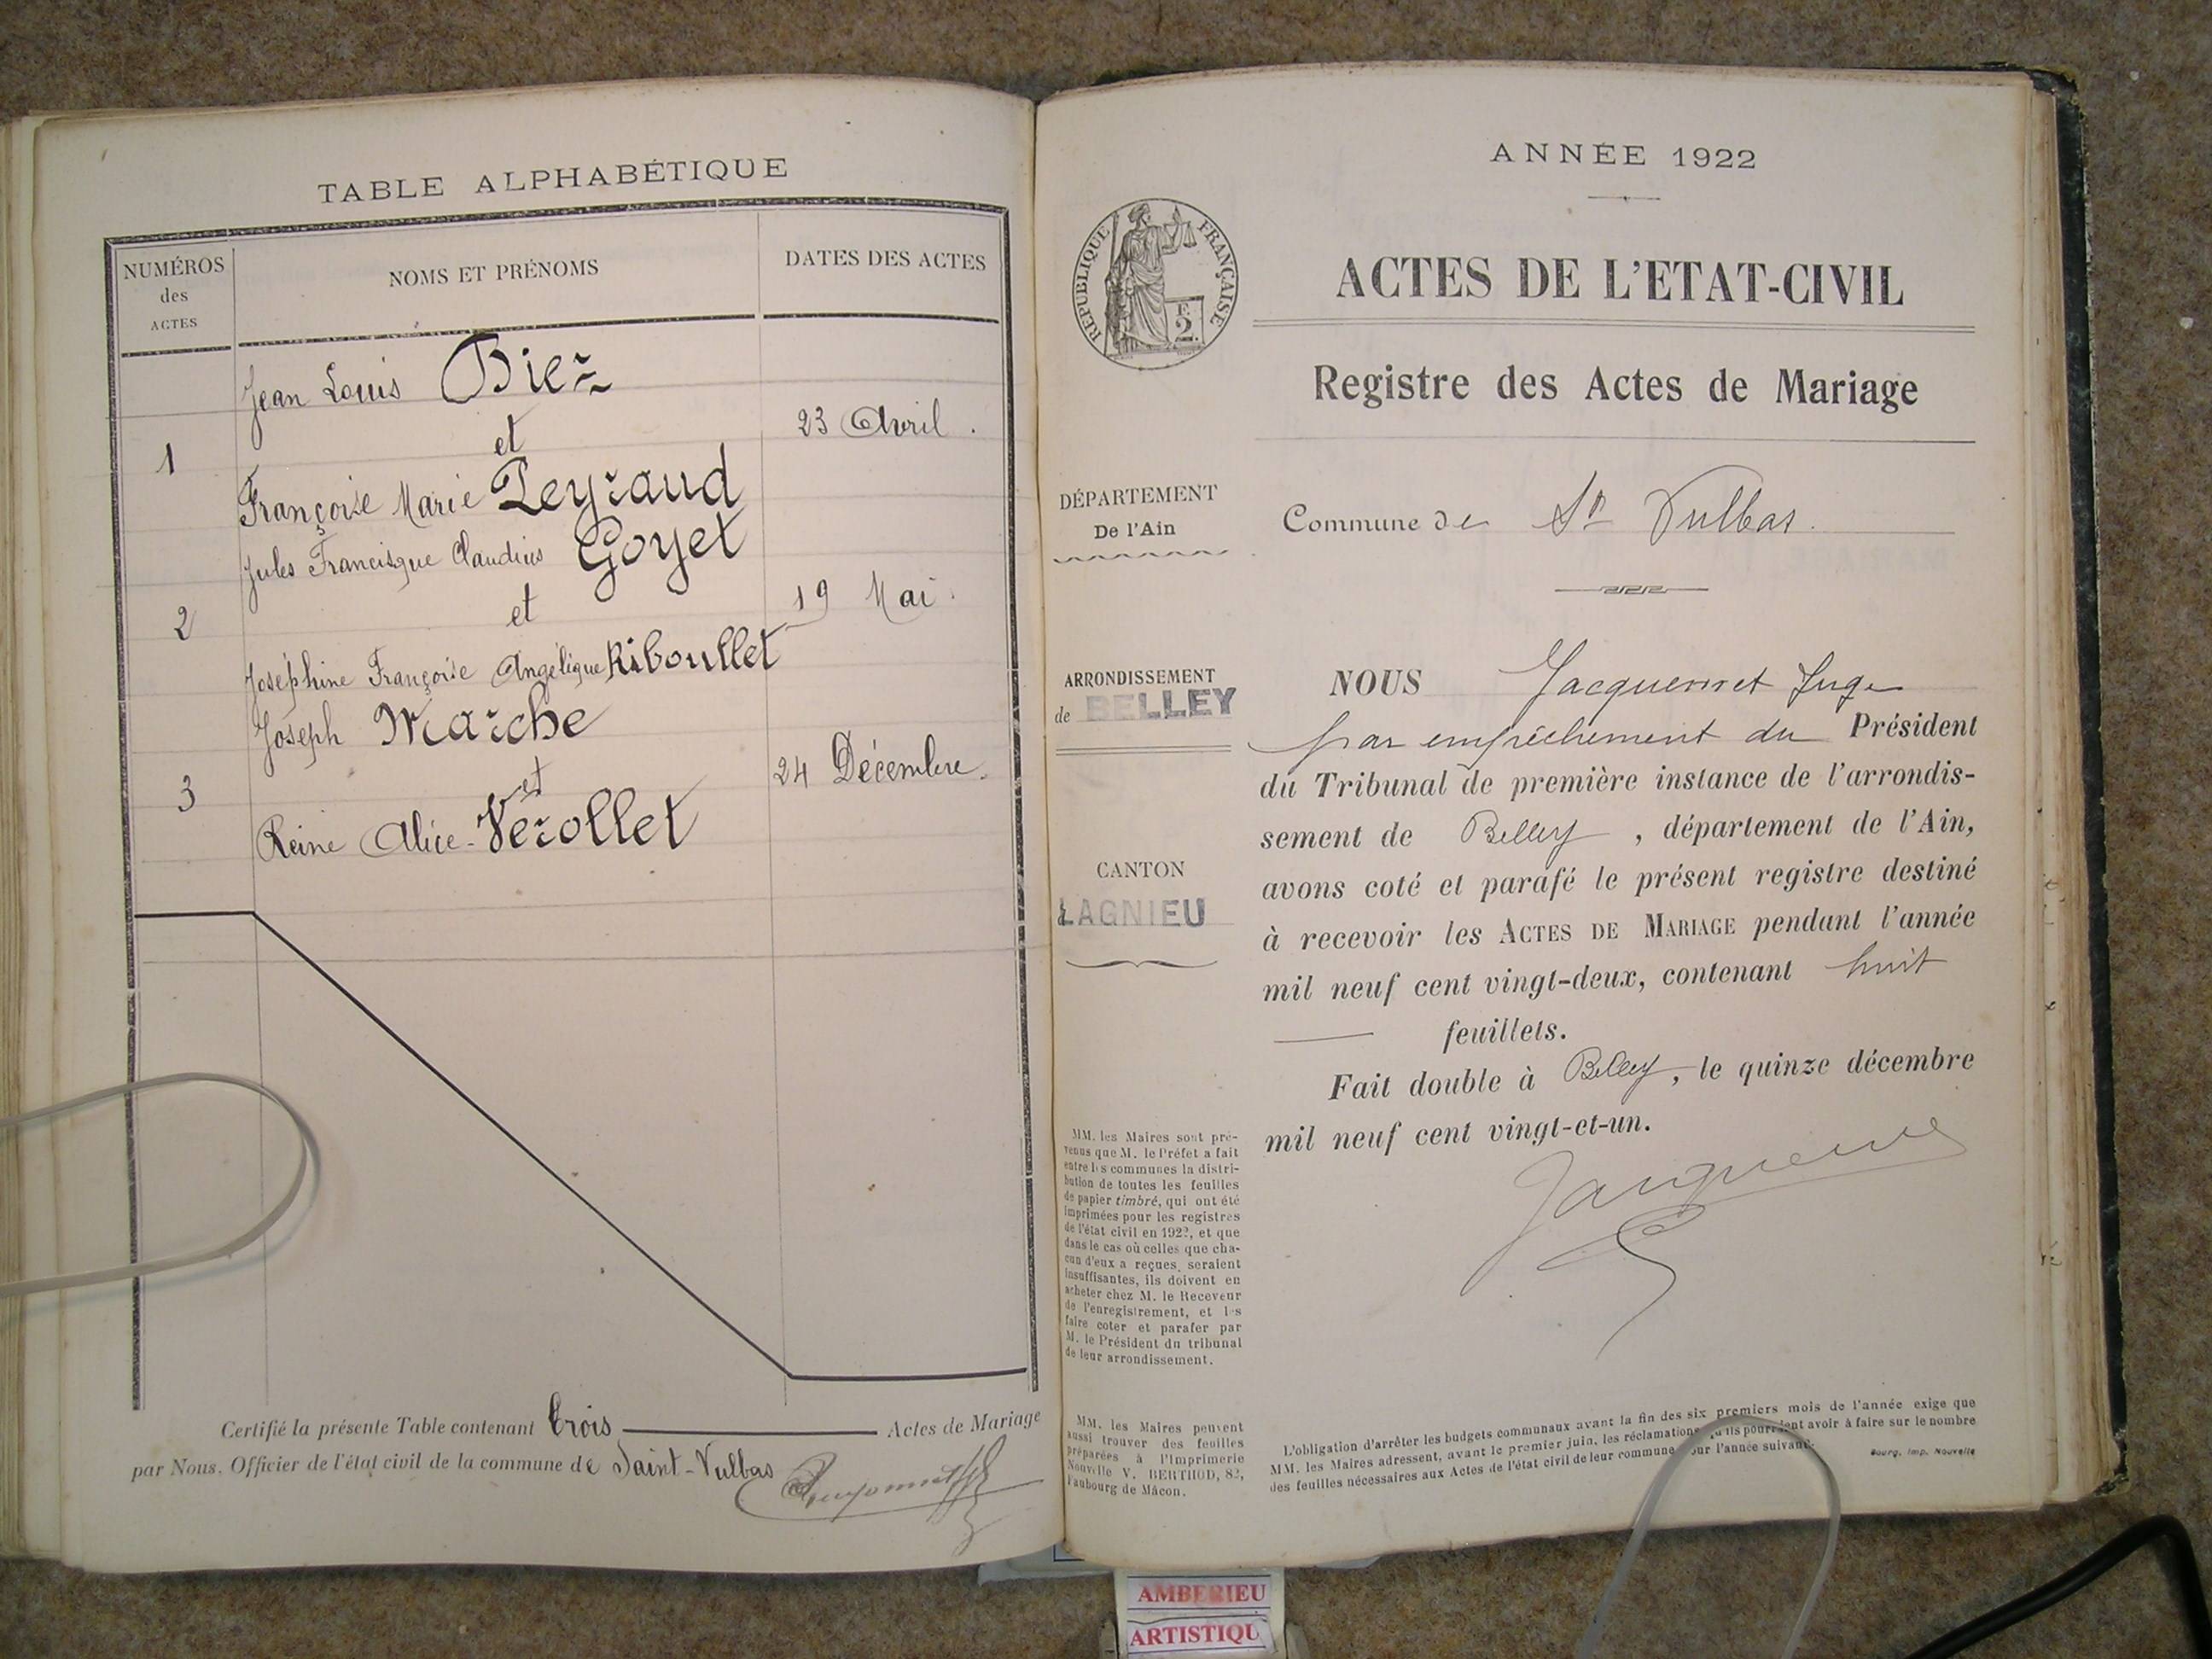 TABLE ALPHABÉTIQUE
NUMÉROS
des
ACTES
NOMS ET PRÉNOMS
DATES DES ACTES
Jean Louis Biez
et
1
23 Avril.
Françoise Marie Peyraud
Jules Francisque Claudius Goyet
et
2
19 Mai.
Joséphine Françoise Angélique Riboullet
Joseph Marche
et
3
24 Décembre.
Reine Alice Verollet
Certifié la présente Table contenant trois Actes de Mariage
par Nous, Officier de l'état civil de la commune de Saint-Vulbas
ANNÉE 1922
RÉPUBLIQUE FRANÇAISE
F.
2.
ACTES DE L'ETAT-CIVIL
Registre des Actes de Mariage
DÉPARTEMENT
De l'Ain
Commune de St Vulbas.
ARRONDISSEMENT
de BELLEY
CANTON
LAGNIEU
NOUS Jacquemet Juge
par empêchement du Président
du Tribunal de première instance de l'arrondis-
sement de Belley, département de l'Ain,
avons coté et parafé le présent registre destiné
à recevoir les ACTES DE MARIAGE pendant l'année
mil neuf cent vingt-deux, contenant huit
feuillets.
Fait double à Belley, le quinze décembre
mil neuf cent vingt-et-un.
MM. les Maires sont pré-
venus que M. le Préfet a fait
entre les communes la distri-
bution de toutes les feuilles
de papier timbré, qui ont été
imprimées pour les registres
de l'état civil en 1922, et que
dans le cas où celles que cha-
cun d'eux a reçues, seraient
insuffisantes, ils doivent en
acheter chez M. le Receveur
de l'enregistrement, et les
faire coter et parafer par
M. le Président du tribunal
de leur arrondissement.
MM. les Maires peuvent
aussi trouver des feuilles
préparées à l'Imprimerie
Nouvelle V. BERTHOD, 82,
faubourg de Mâcon.
L'obligation d'arrêter les budgets communaux avant la fin des six premiers mois de l'année exige que
MM. les Maires adressent, avant le premier juin, les réclamations qu'ils pourraient avoir à faire sur le nombre
des feuilles nécessaires aux Actes de l'état civil de leur commune pour l'année suivante.
Bourg, Imp. Nouvelle
AMBERIEU
ARTISTIQU